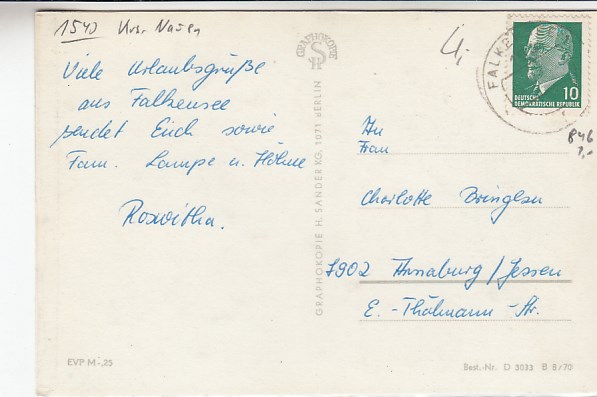 1540 Krs. Nauen
Viele Urlaubsgrüße
aus Falkensee
sendet Euch sowie
Fam. Lampe u. Höhne
Roswitha.
GRAPHOKOPIE
GRAPHOKOPIE H. SANDER KG, 1071 BERLIN
4,-
FALKE
10
DEUTSCHE
DEMOKRATISCHE REPUBLIK
846
1,-
An
Frau
Charlotte
7902 Annaburg/Jessen
E.-Thälmann-Str.
EVP M -,25
Best.-Nr. D 3033 B 8/70